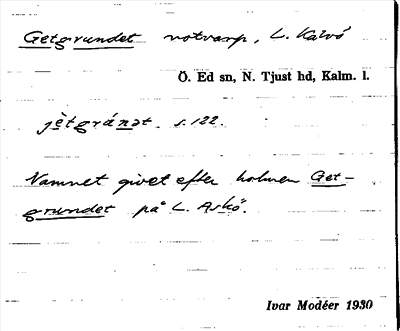 Getgrundet notvarp, L. Kalvö
Ö. Ed sn, N. Tjust hd, Kalm. l.
jètgránət s. 122.
Namnet givet efter holmen Get-
grundet på L. Askö.
Ivar Modéer 1930